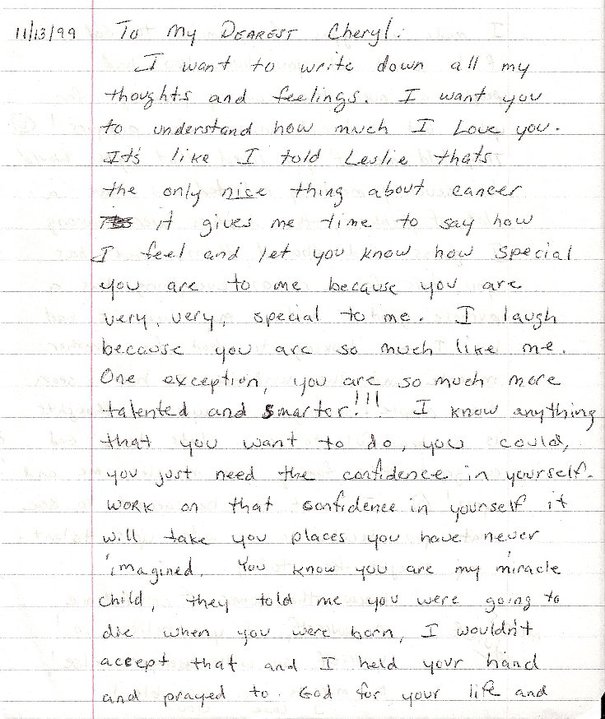 11/13/99 To My Dearest Cheryl:
I want to write down all my
thoughts and feelings. I want you
to understand how much I Love you.
It's like I told Leslie thats
the only nice thing about cancer
it gives me time to say how
I feel and let you know how special
you are to me because you are
very, very, special to me. I laugh
because you are so much like me.
One exception, you are so much more
talented and smarter!!! I know anything
that you want to do, you could,
you just need the confidence in yourself.
Work on that confidence in yourself it
will take you places you have never
imagined. You know you are my miracle
child, they told me you were going to
die when you were born, I wouldn't
accept that and I held your hand
and prayed to God for your life and